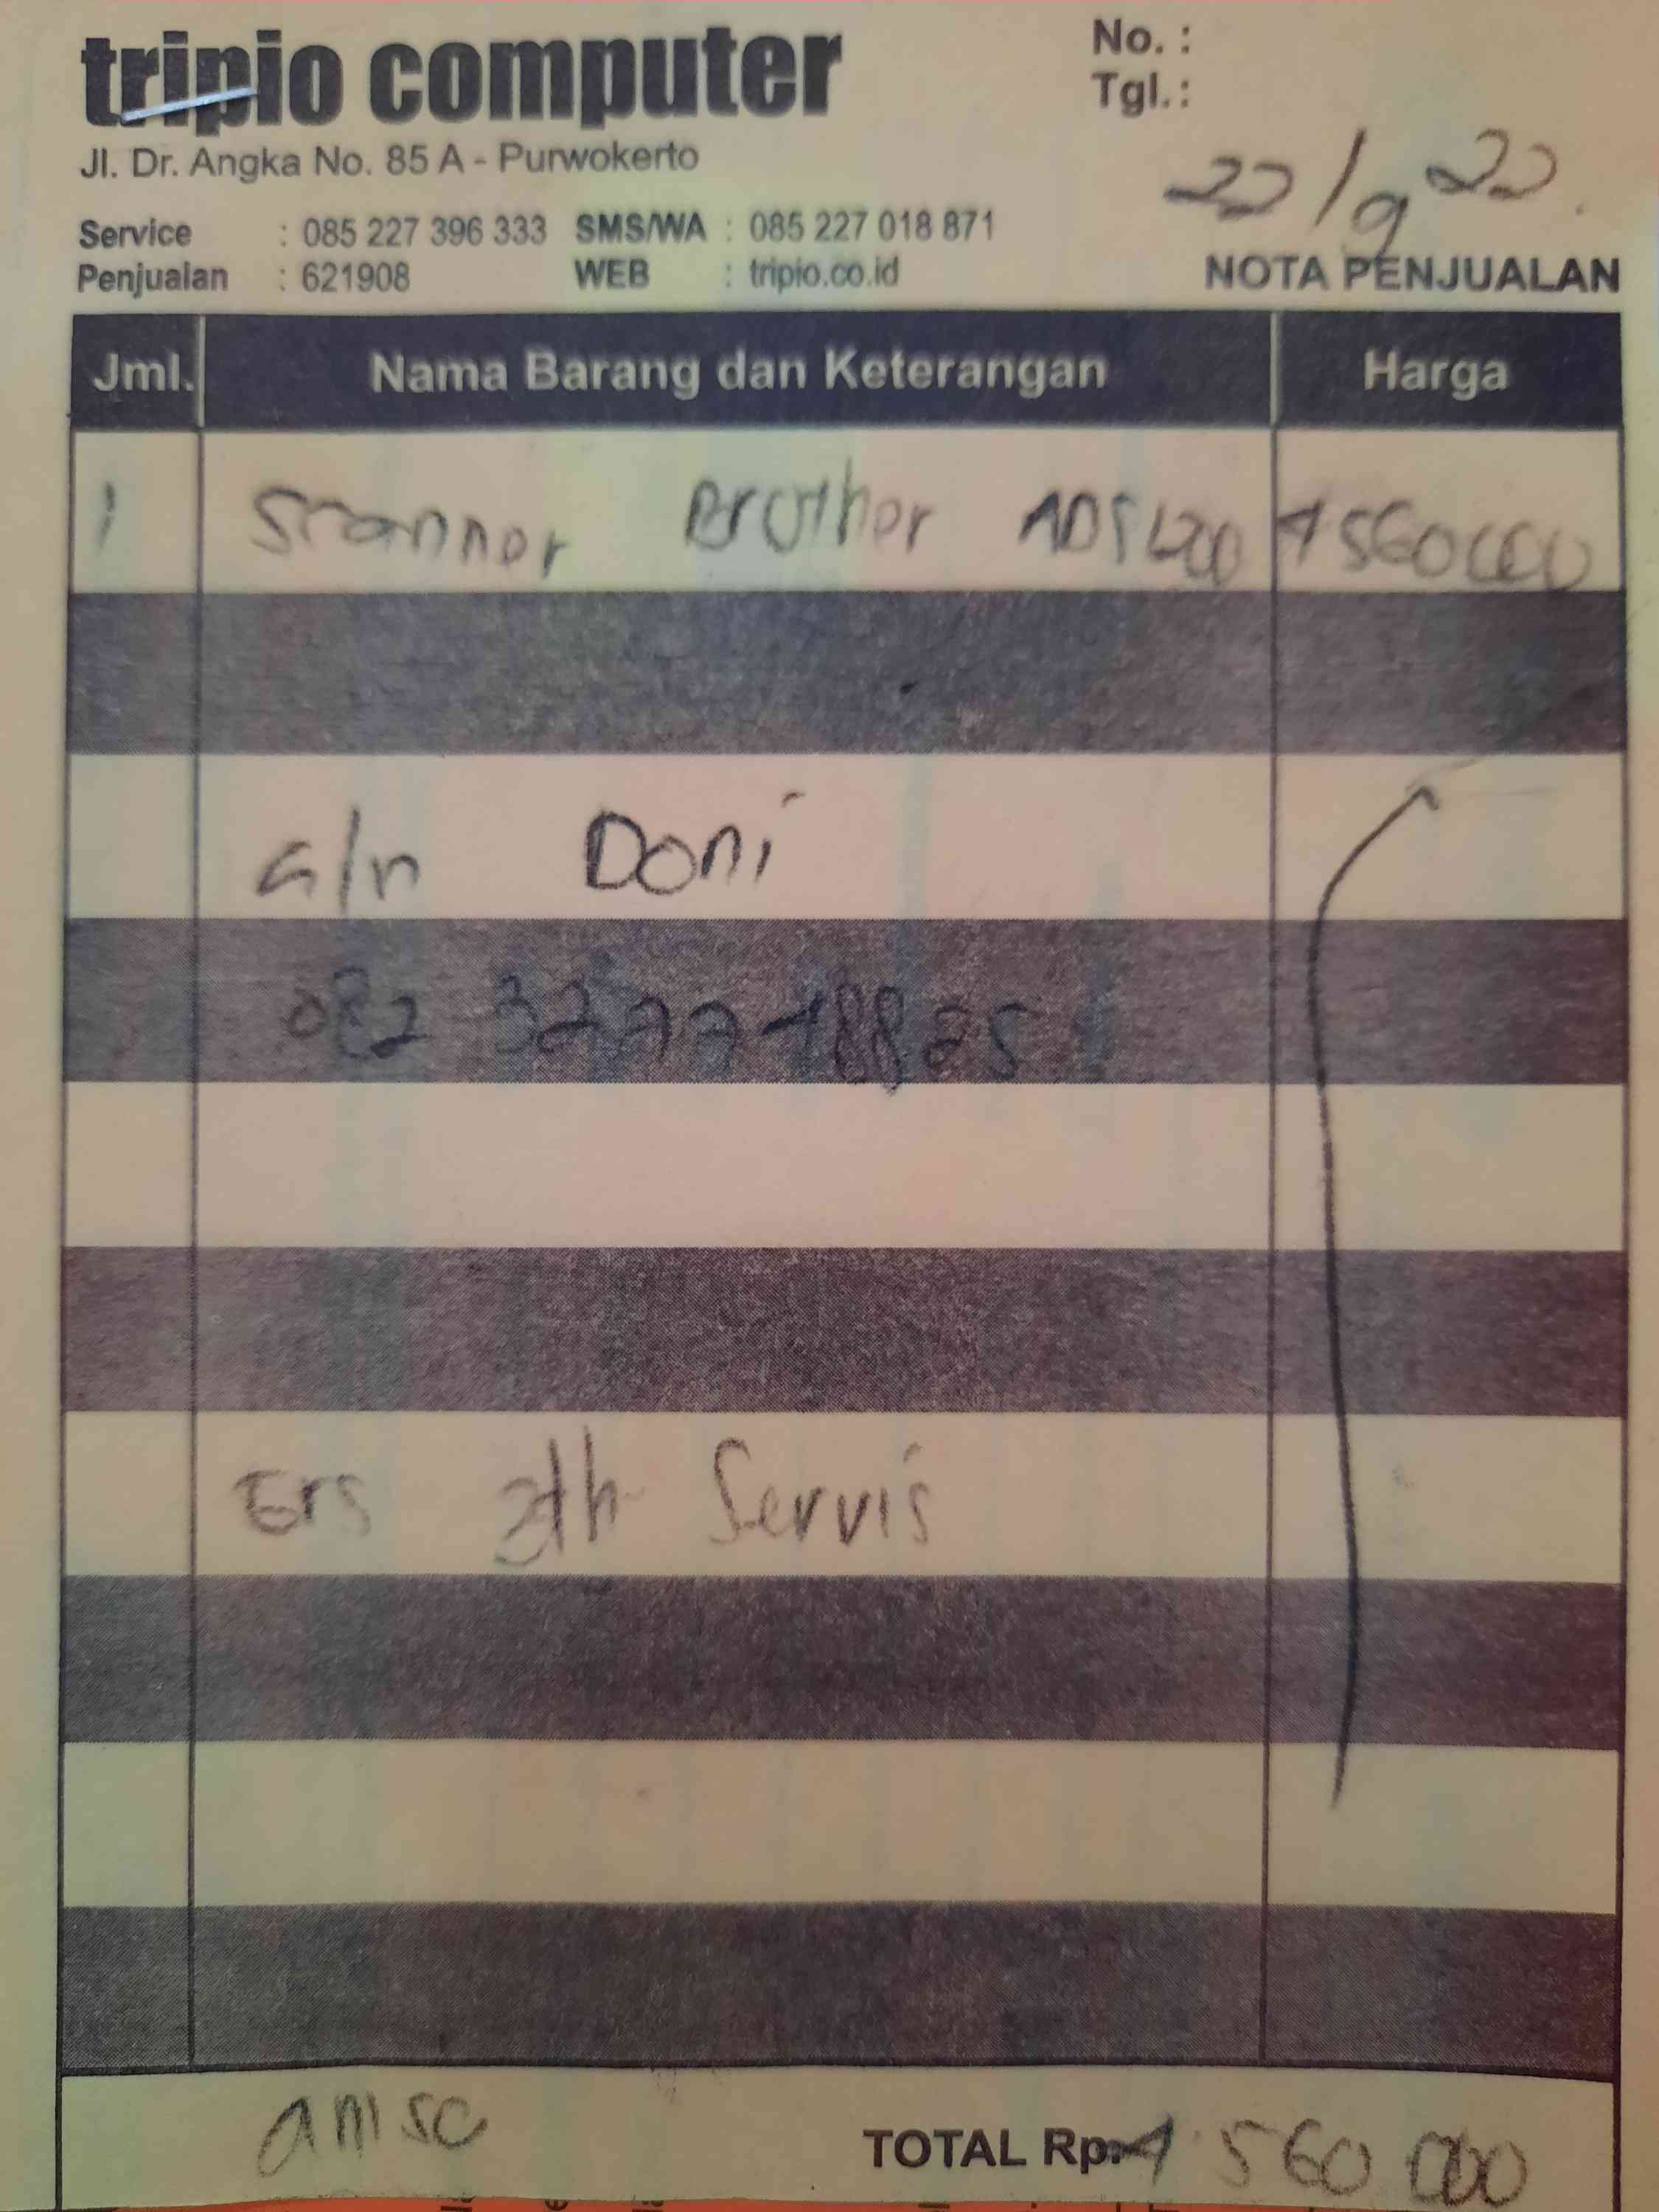 tripio computer
No. :
Tgl. :
Jl. Dr. Angka No. 85 A - Purwokerto
22/9 22.
Service : 085 227 396 333 SMS/WA : 085 227 018 871
Penjualan : 621908 WEB : tripio.co.id
NOTA PENJUALAN
Jml. Nama Barang dan Keterangan Harga
1 Scanner Brother 4560000
a/n Doni
082
Grs 2th Servis
anisa
TOTAL Rp. 4 560 000